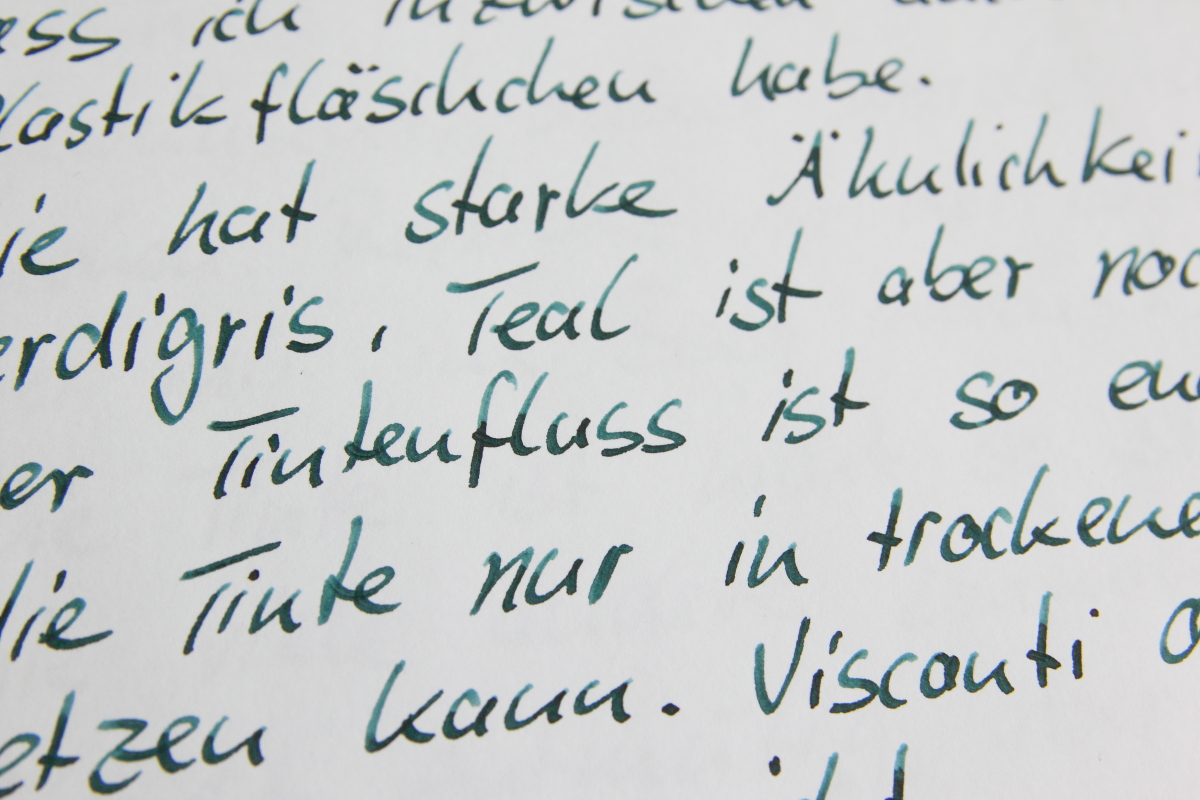 ess ich inzwischen
lastikfläschchen habe.
ie hat starke Ähnlichkei
erdigris, Teal ist aber noc
er Tintenfluss ist so en
die Tinte nur in trockene
etzen kann. Visconti